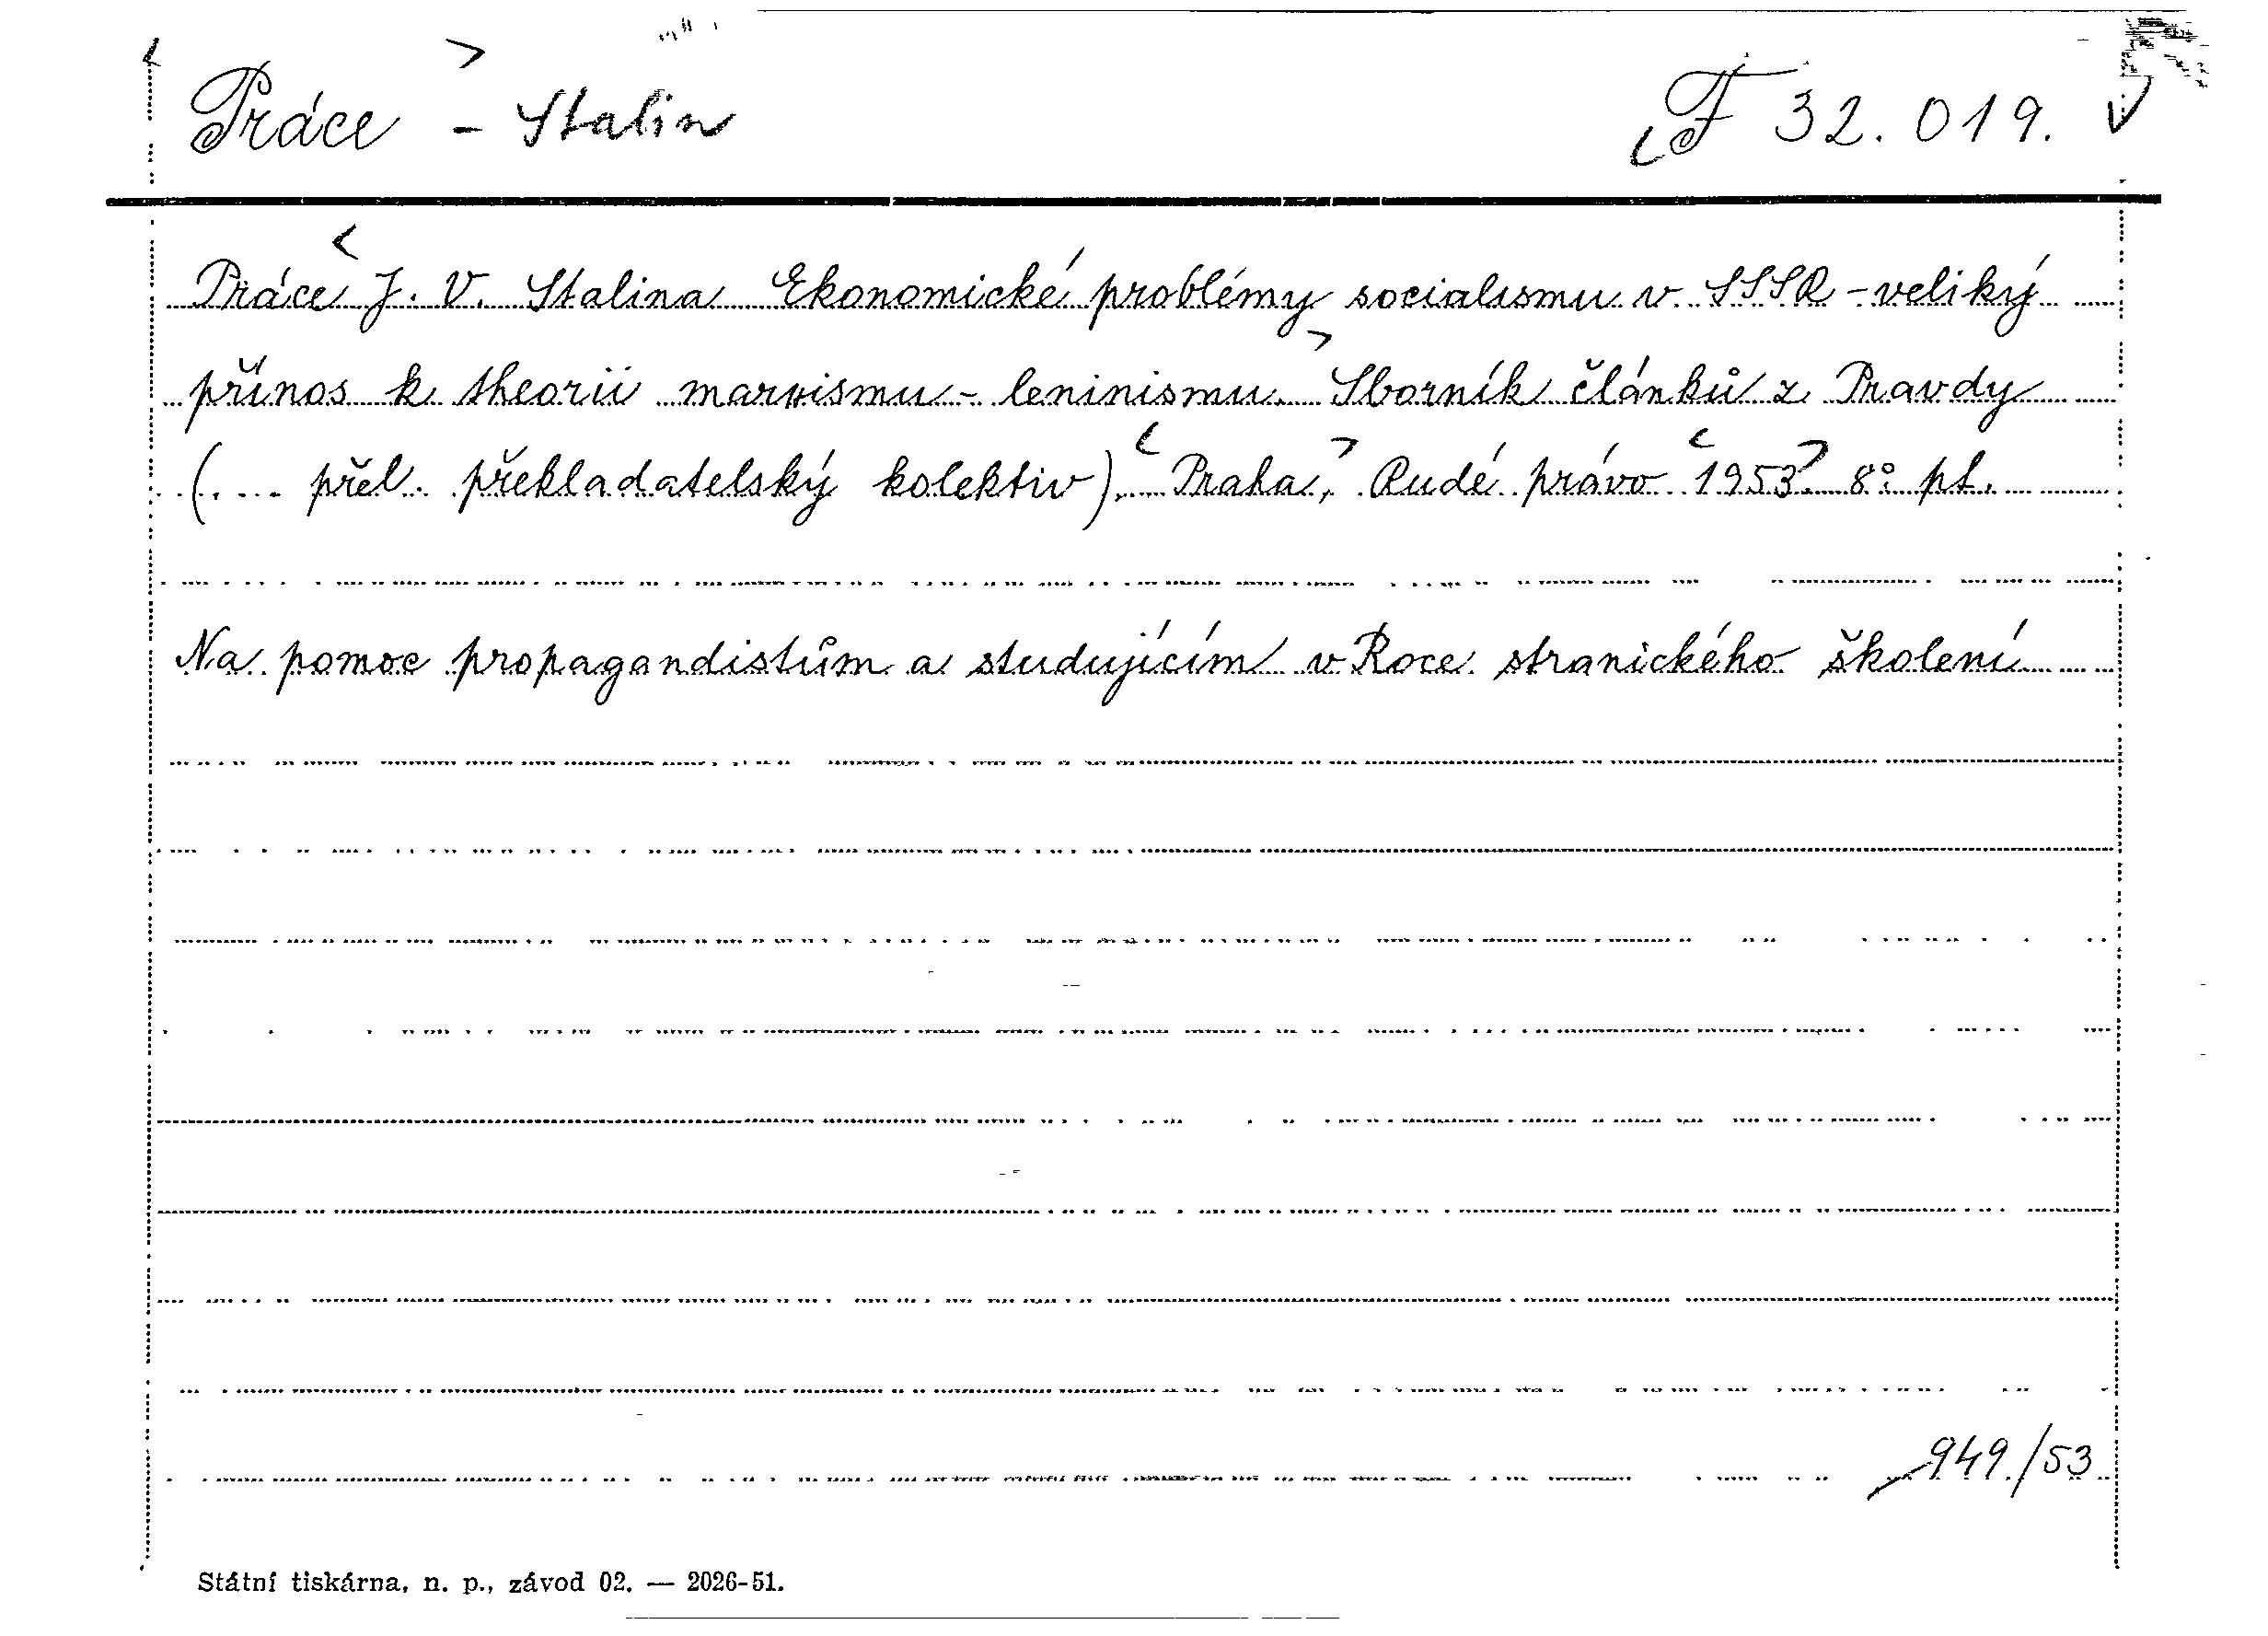 Práce - Stalin F 32.019.
Práce J. V. Stalina Ekonomické problémy socialismu v SSSR - veliký
přínos k theorii marxismu - leninismu. Sborník článků z Pravdy
(... přel. překladatelský kolektiv). Praha, Rudé právo 1953. 8° pt.
Na pomoc propagandistům a studujícím v Roce stranického školení
949/53
Státní tiskárna, n. p., závod 02. — 2026-51.